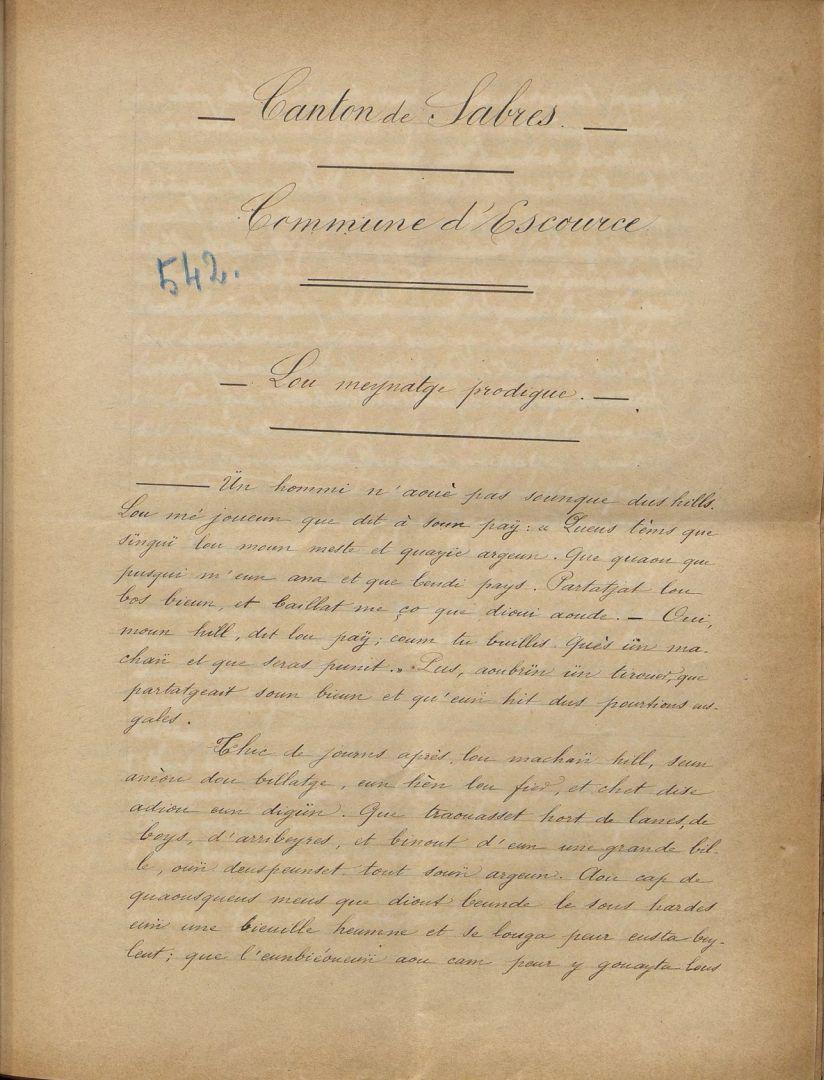 — Canton de Sabres. —
Commune d'Escource.
542.
— Lou meynatge prodigue. —
— Ün hommi n'aouè pas seunque dus hills.
Lou mé joueun que dit à soun paÿ : « Queus tèms que
sïnguï lou moun meste et quayïe argeun. Que quaou que
pusqui m'eun ana et que bendi pays. Partatjat lou
bos bieun, et baillat me ço que dioui aoude. — Oui,
moun hill, dit lou paÿ ; coum tu buillis. Quès ün ma-
chaň et que seras punit. » Pus, aoubrïn ün tirouer, que
partatgeait soun bieun et qu'euň hit dus pourtions eus-
gales.
Tluc de journs après, lou machaň hill, s'eun
anèou dou billatge, eun hèn lou fier, et chet dise
adiou eun digün. Que traouasset hort de lanes, de
boys, d'arribeyres, et binout d'eun une grande bil-
le, ouň deuspeunset tout souň argeun. Aou cap de
quaousqueus meus que diout beunde le sous hardes
eun une bieuille heumne et se louga peur eusta bay-
leut ; que l'eunbiéoueuň aou cam peur y gouayta lous